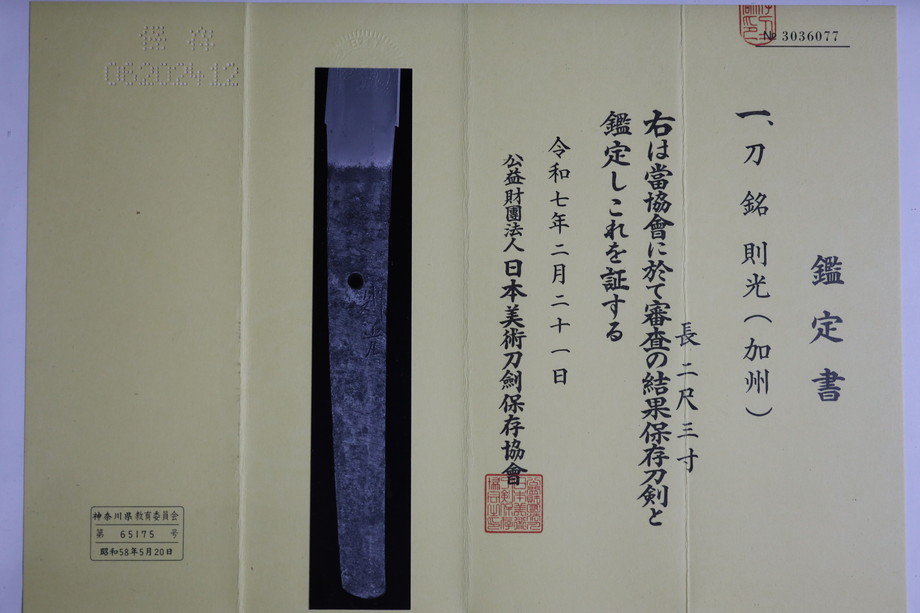 № 3036077
鑑定書
一、刀 銘 則光(加州)
長二尺三寸
右は當協會に於て審査の結果保存刀剣と
鑑定しこれを証する
令和七年二月二十一日
公益財團法人 日本美術刀劍保存協會
則光
保存
06202412
神奈川県教育委員会
第 65175 号
昭和58年5月20日